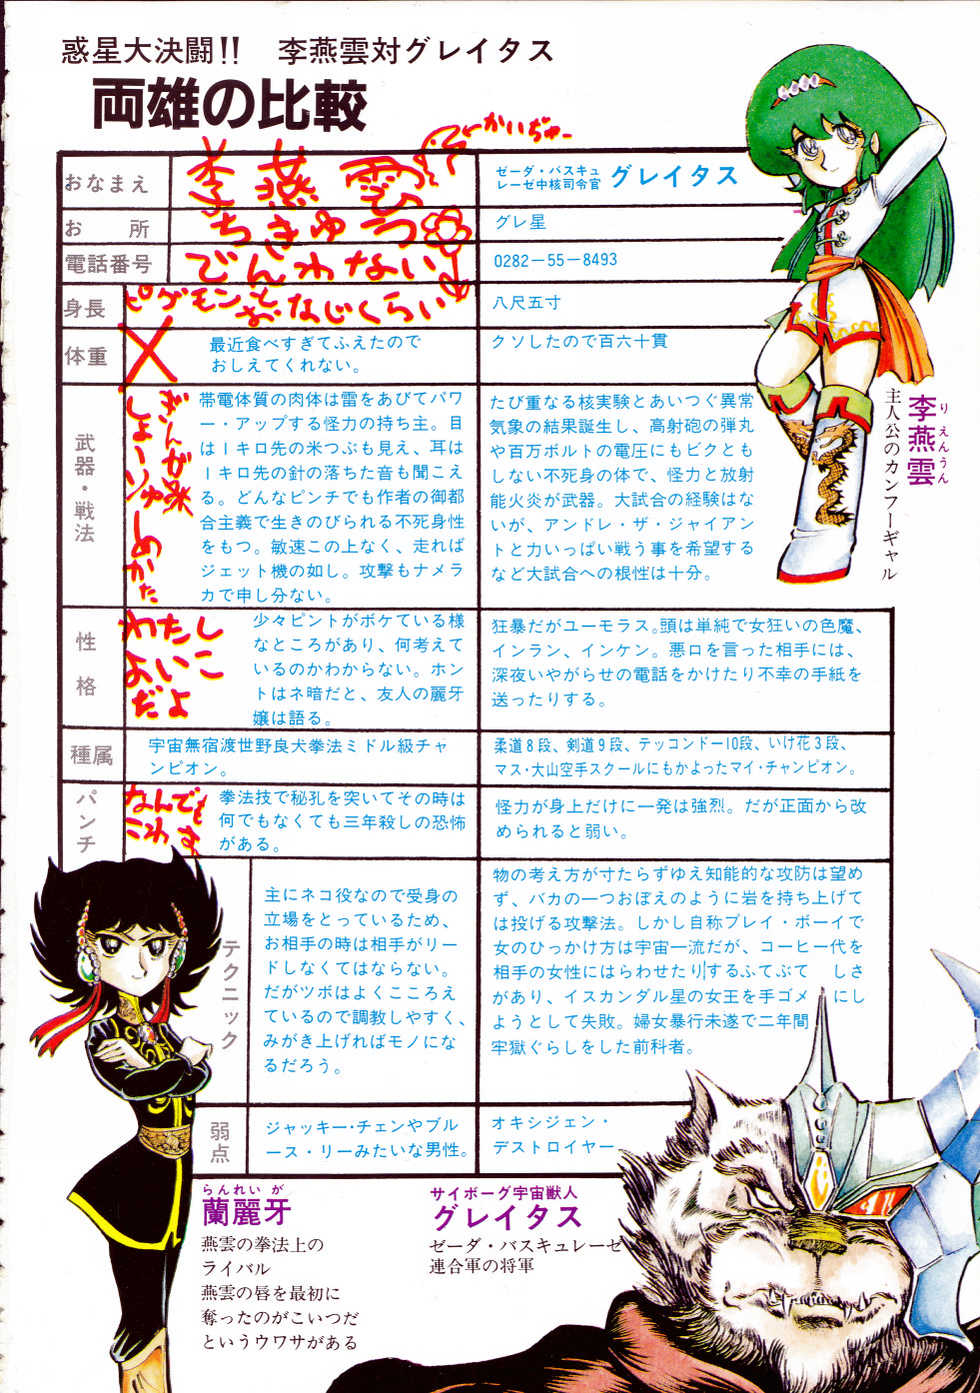 惑星大決闘!!　李燕雲対グレイタス
両雄の比較
おなまえ
李燕雲
←かいぢゅー
ゼーダ・バスキュ
レーゼ中核司令官 グレイタス
お所
ちきゅう
グレ星
電話番号
でんわない
0282－55－8493
身長
ピグモンとおなじくらい
八尺五寸
体重
最近食べすぎてふえたので
おしえてくれない。
クソしたので百六十貫
武器・戦法
ぎんが㹨
しょーりゅー
しめかた
帯電体質の肉体は雷をあびてパワ
ー・アップする怪力の持ち主。目
は1キロ先の米つぶも見え、耳は
1キロ先の針の落ちた音も聞こえ
る。どんなピンチでも作者の御都
合主義で生きのびられる不死身性
をもつ。敏速この上なく、走れば
ジェット機の如し。攻撃もナメラ
カで申し分ない。
たび重なる核実験とあいつぐ異常
気象の結果誕生し、高射砲の弾丸
や百万ボルトの電圧にもビクとも
しない不死身の体で、怪力と放射
能火炎が武器。大試合の経験はな
いが、アンドレ・ザ・ジャイアン
トと力いっぱい戦う事を希望する
など大試合への根性は十分。
性格
わたし
よいこ
だよ
少々ピントがボケている様
なところがあり、何考えて
いるのかわからない。ホン
トはネ暗だと、友人の麗牙
嬢は語る。
狂暴だがユーモラス。頭は単純で女狂いの色魔、
インラン、インケン。悪口を言った相手には、
深夜いやがらせの電話をかけたり不幸の手紙を
送ったりする。
種属
宇宙無宿渡世野良犬拳法ミドル級チャ
ンピオン。
柔道8段、剣道9段、テッコンドー10段、いけ花3段、
マス・大山空手スクールにもかよったマイ・チャンピオン。
パンチ
なんでも
こわす
拳法技で秘孔を突いてその時は
何でもなくても三年殺しの恐怖
がある。
怪力が身上だけに一発は強烈。だが正面から改
められると弱い。
テクニック
主にネコ役なので受身の
立場をとっているため、
お相手の時は相手がリー
ドしなくてはならない。
だがツボはよくこころえ
ているので調教しやすく、
みがき上げればモノにな
るだろう。
物の考え方が寸たらずゆえ知能的な攻防は望め
ず、バカの一つおぼえのように岩を持ち上げて
は投げる攻撃法。しかし自称プレイ・ボーイで
女のひっかけ方は宇宙一流だが、コーヒー代を
相手の女性にはらわせたりするふてぶて　しさ
があり、イスカンダル星の女王を手ゴメ　にし
ようとして失敗。婦女暴行未遂で二年間
牢獄ぐらしをした前科者。
弱点
ジャッキー・チェンやブル
ース・リーみたいな男性。
オキシジェン・
デストロイヤー
りえんうん
李燕雲
主人公のカンフーギャル
らんれいが
蘭麗牙
燕雲の拳法上の
ライバル
燕雲の唇を最初に
奪ったのがこいつだ
というウワサがある
サイボーグ宇宙獣人
グレイタス
ゼーダ・バスキュレーゼ
連合軍の将軍